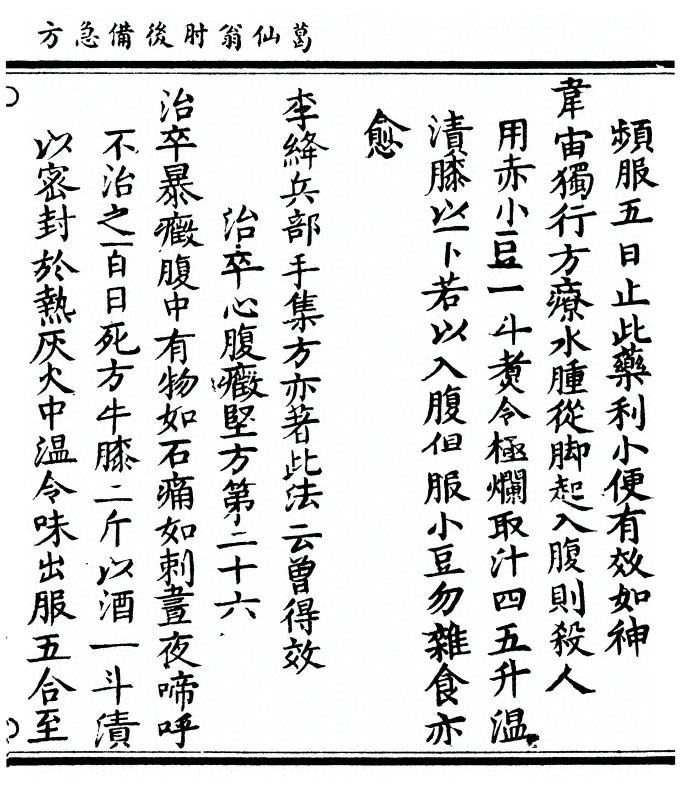 葛仙翁肘後備急方
頻服五日止此藥利小便有效如神
韋宙獨行方療水腫從脚起入腹則殺人
用赤小豆一斗煑令極爛取汁四五升温
漬膝以下若以入腹但服小豆勿雜食亦
愈
李絳兵部手集方亦著此法云曾得效
治卒心腹癥堅方第二十六
治卒暴癥腹中有物如石痛如刺晝夜啼呼
不治之百日死方牛膝二斤以酒一斗漬
以密封於熱灰火中温令味出服五合至